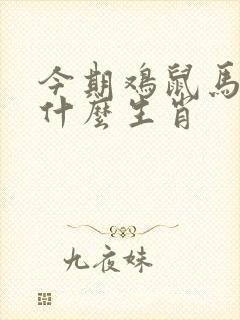 今期鸡鼠馬
什麼生肖
九夜妹